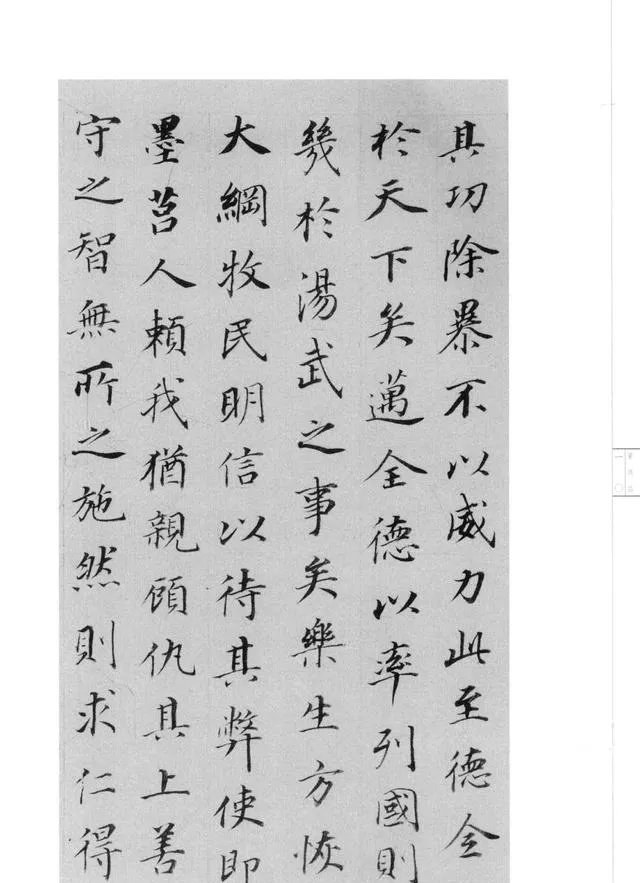 其功除暴不以威力此至德全
於天下矣邁全德以率列國則
幾於湯武之事矣樂生方恢
大綱牧民明信以待其弊使即
墨莒人賴我猶親顧仇其上善
守之智無所之施然則求仁得
一〇